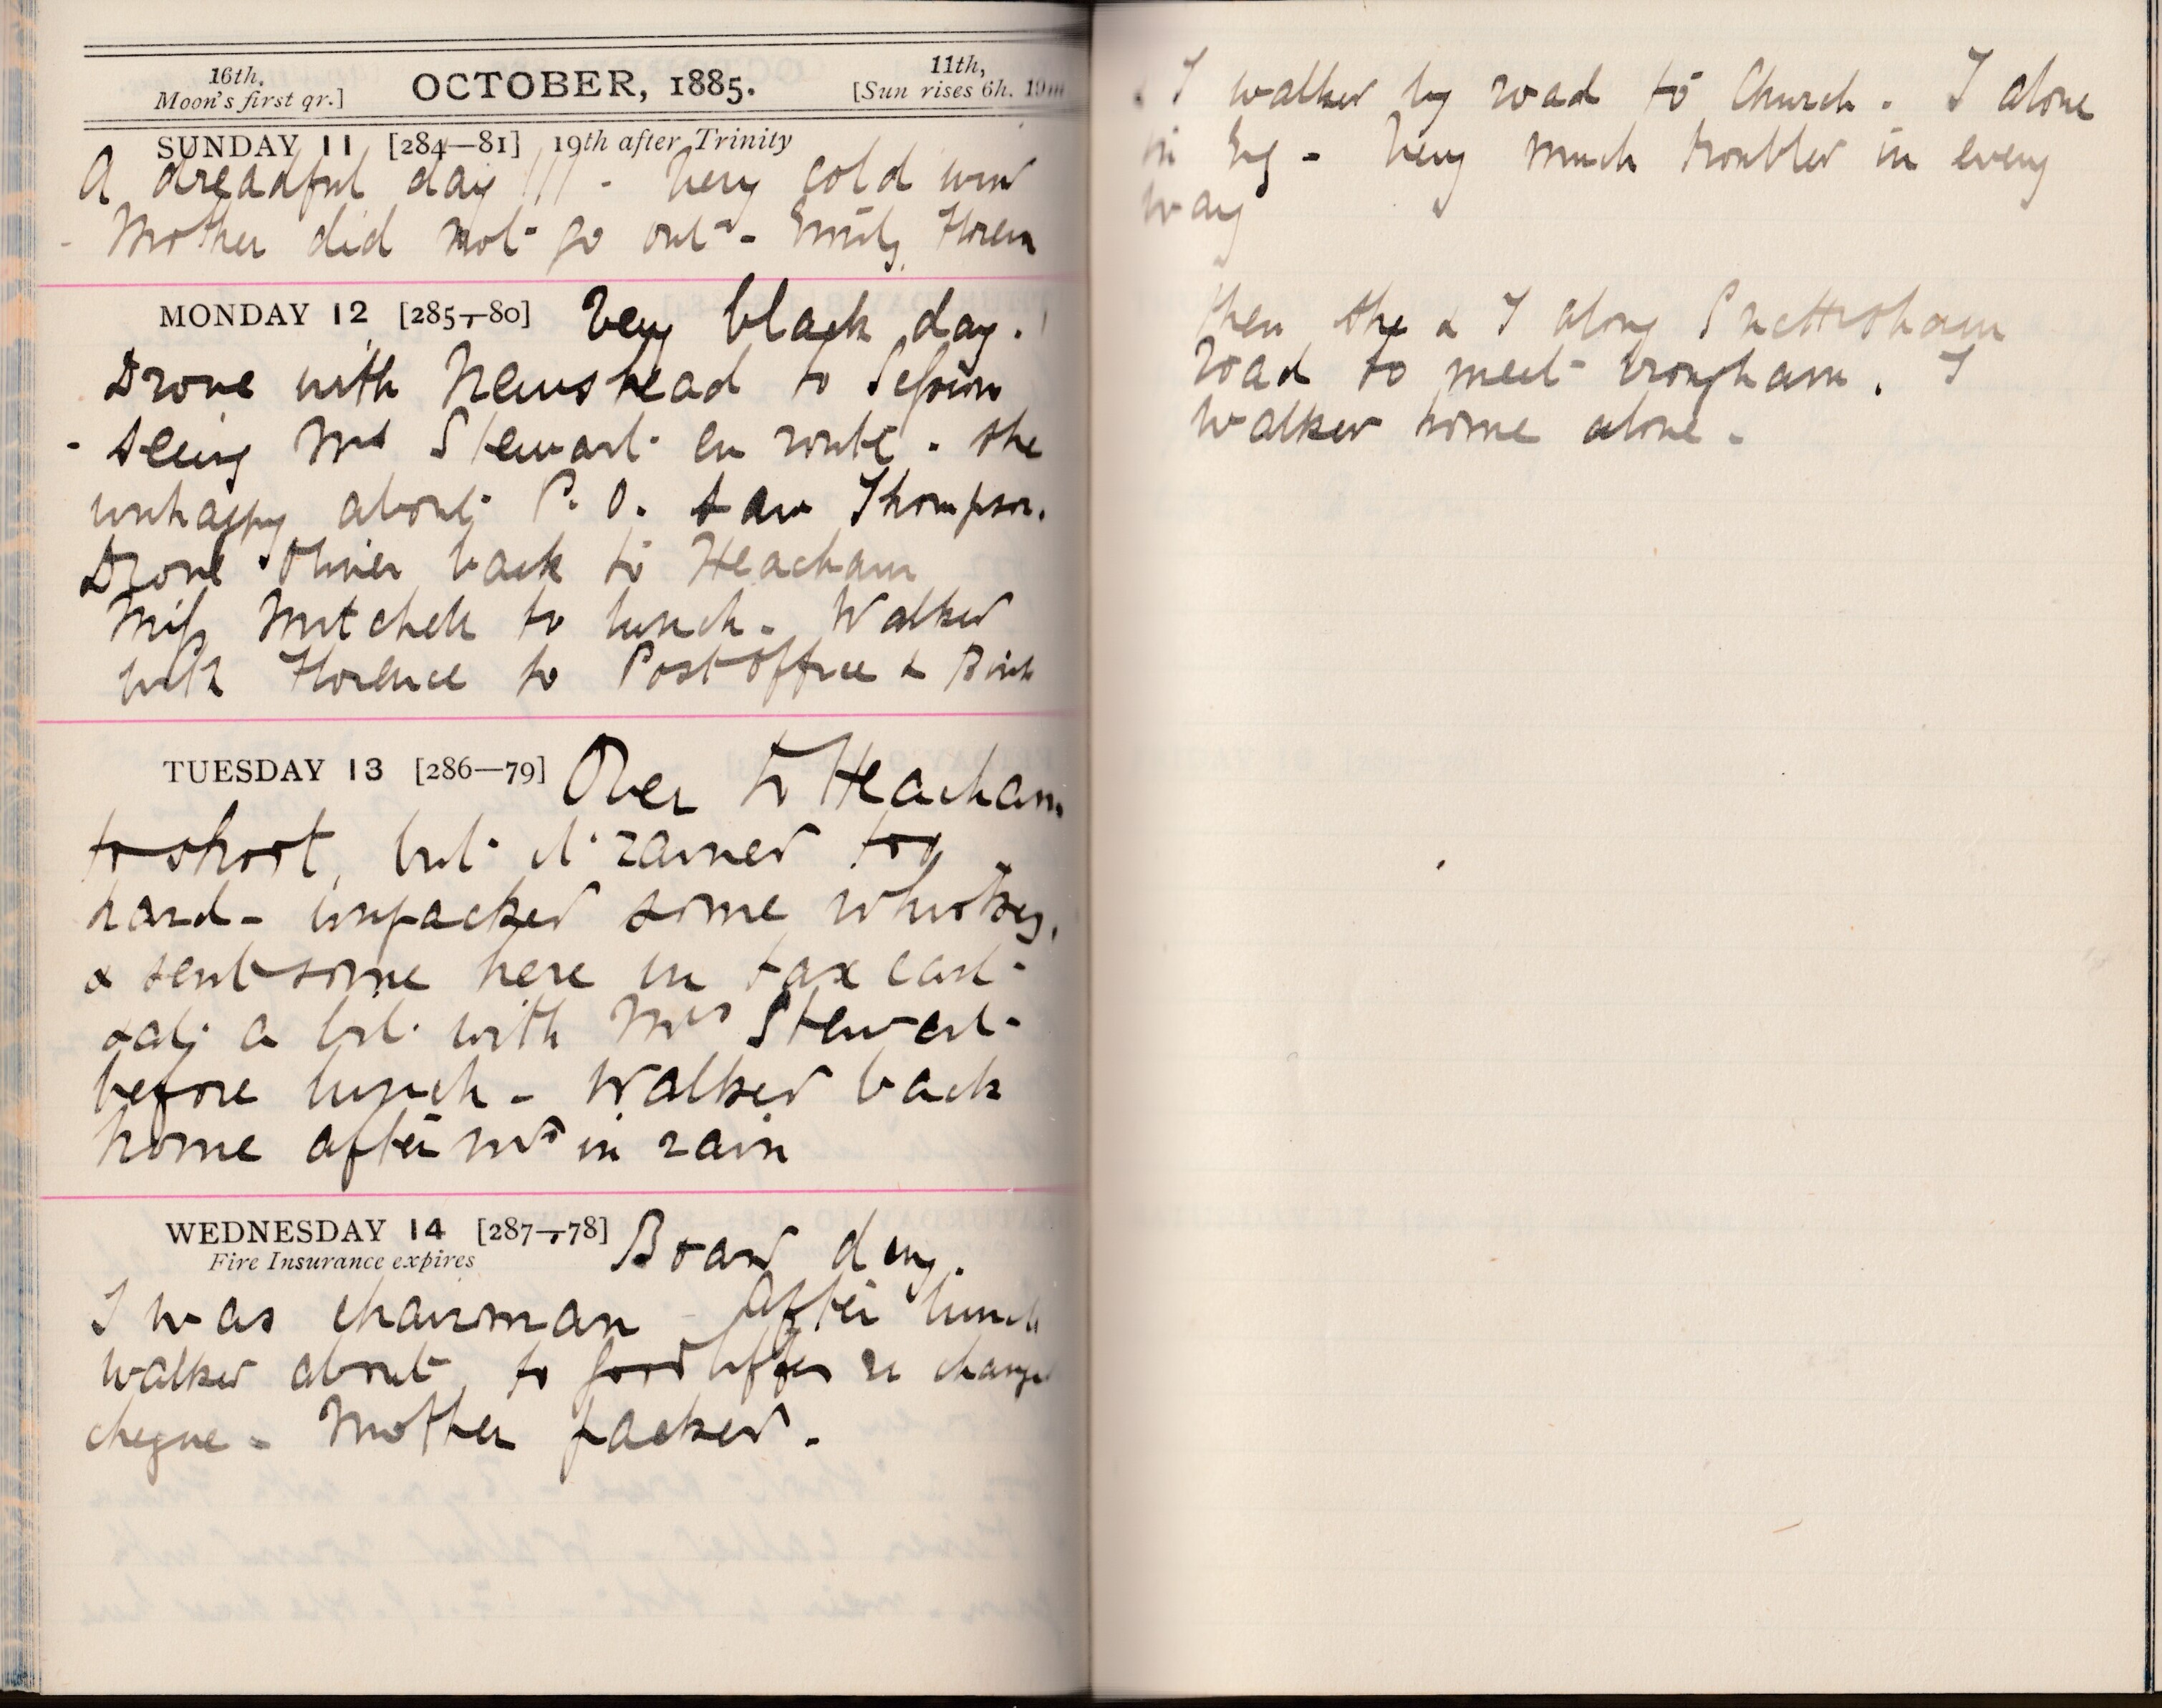 16th,
Moon's first qr.]
OCTOBER, 1885.
11th,
[Sun rises 6h. 19m
SUNDAY 11 [284—81] 19th after Trinity
A dreadful day !!! - Very cold wind
- Mother did not go out - Emily, Floren
MONDAY 12 [285—80] Very black day.
Drove with Newstead to Session
- seeing Mrs Stewart en route - she
unhappy about P. O. saw Thompson.
Drove Oliver back to Heacham
Miss Mitchell to lunch - Walked
with Florence to Post Office &
TUESDAY 13 [286—79] Over to Heacham
to shoot, but it rained too
hard - unpacked some whiskey,
& sent some here in tax cart -
sat a bit with Mrs Stewart -
before lunch - Walked back
home after in rain
WEDNESDAY 14 [287—78] Board day.
Fire Insurance expires
I was chairman - After lunch
walked about, to re change
cheque - Mother packed -
& I walked by road to Church - I alone
in Evg - Very much troubled in every
way
then she & I along Snettisham
road to meet brougham. I
walked home alone -